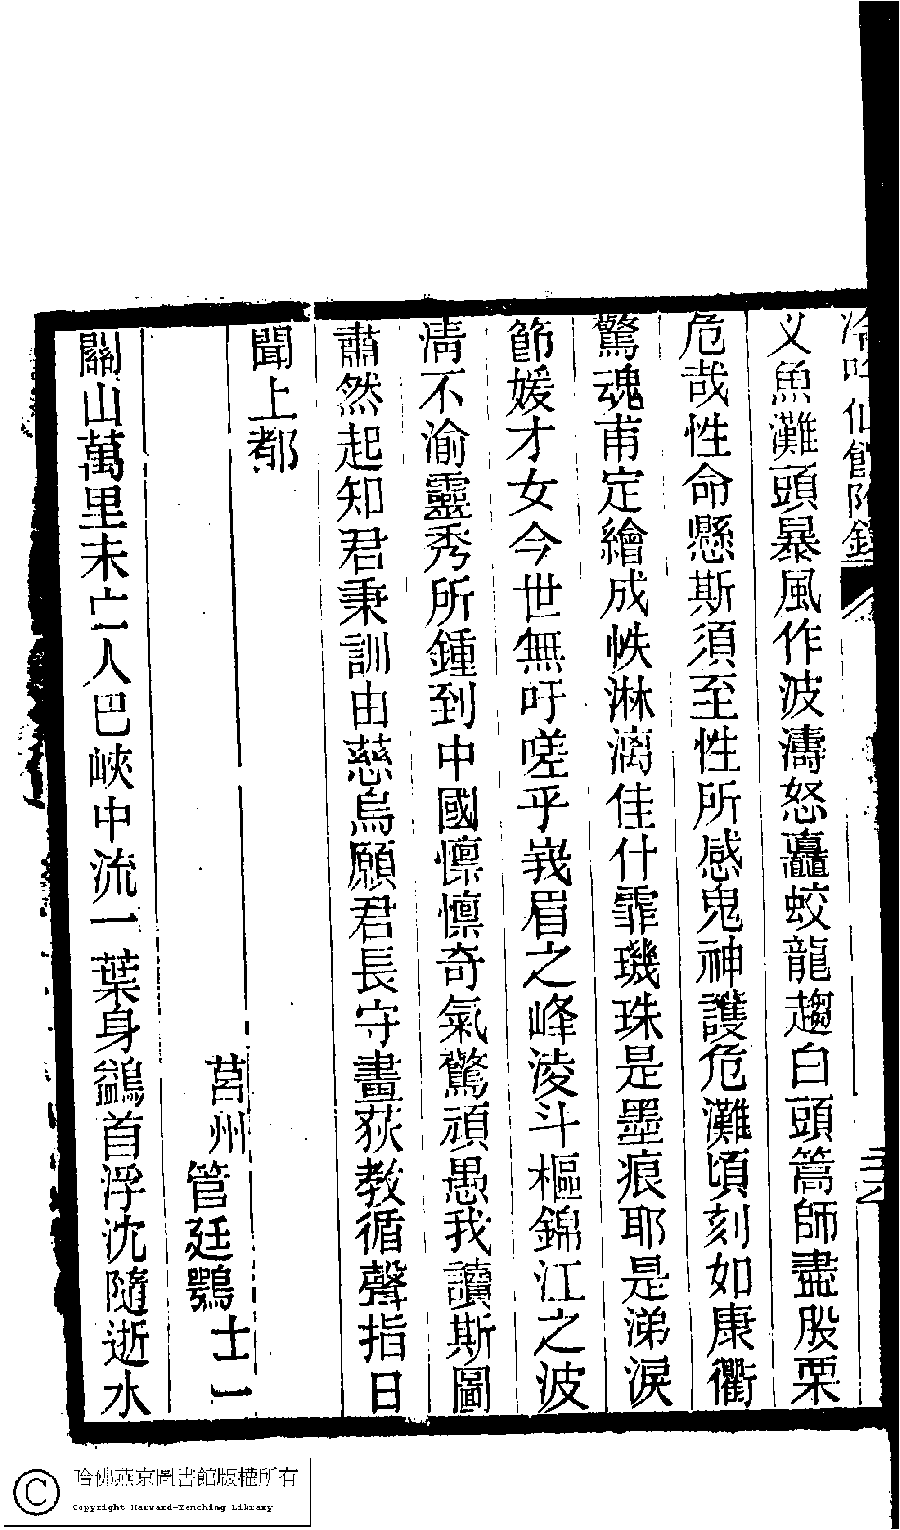 冷吟仙館附錄
三六
义魚灘頭暴風作波濤怒矗蛟龍趨白頭篙師盡股栗
危哉性命懸斯須至性所感鬼神護危灘頃刻如康衢
驚魂甫定繪成帙淋漓佳什霏璣珠是墨痕耶是涕淚
節媛才女今世無吁嗟乎峩眉之峰淩斗樞錦江之波
淸不渝靈秀所鍾到中國懍懍奇氣驚頑愚我讀斯圖
肅然起知君秉訓由慈烏願君長守畫荻教循聲指日
聞上都
莒州管廷鶚士一
關山萬里未亡人巴峽中流一葉身鷁首浮沈隨逝水
哈佛燕京圖書館版權所有
Copyright Harvard-Yenching Library